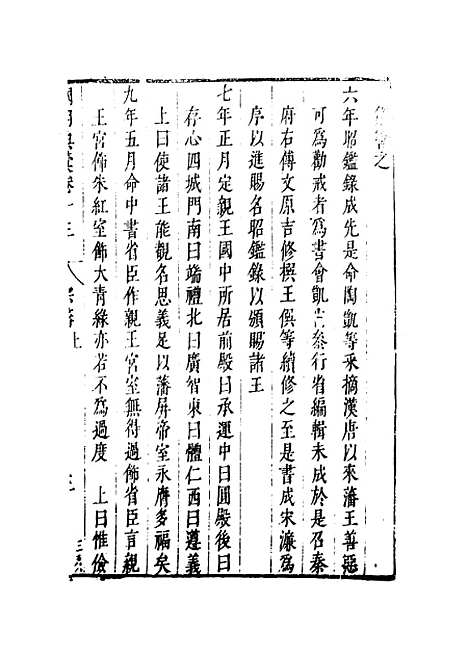 之
六年昭鑑錄成先是命陶凱等采摘漢唐以來藩王善惡
可爲勸戒者爲書會凱出叅行省編輯未成於是召秦
府右傅文原吉修撰王僎等續修之至是書成宋濂爲
序以進賜名昭鑑錄以頒賜諸王
七年正月定親王國中所居前殿曰承運中曰圓殿後曰
存心四城門南曰端禮北曰廣智東曰體仁西曰遵義
上曰使諸王能觀名思義足以藩屏帝室永膺多福矣
九年五月命中書省臣作親王宮室無得過飾省臣言親
王宮飾朱紅室飾大青緑亦若不爲過度　上曰惟儉
卷十三　宗藩上　三